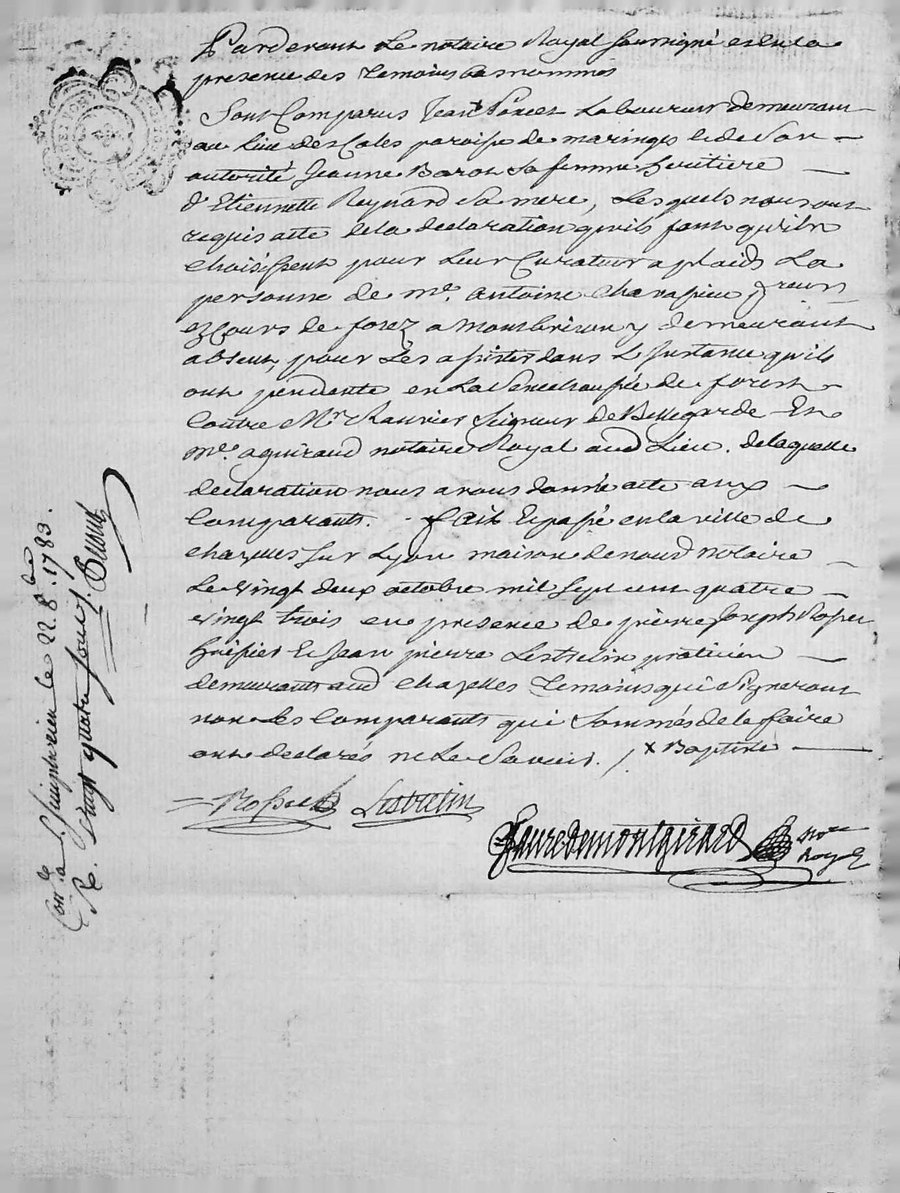 Pardevant Le notaire Royal soussigné et en la
presence des Temoins bas nommés
Sont Comparus Jean Poncet Laboureur demeurant
au Lieu des Coles paroisse de maringes et de Son
autorité Jeanne Baron Sa femme heritiere
d'Etiennette Reynard Sa mere, Lesquels nous ont
requis acte de la declaration qu'ils font qu'ils
choisissent pour Leur Curateur a plaids La
personne de me. Antoine Chavassieu procureur
ez Cours de forez a Montbrison y demeurant
absent, pour Les assister dans L'Instance qu'ils
ont pendante en La Senechaussée de forest
Contre Mr. Seigneur de Bellegarde Et
me. aguiraud notaire Royal aud Lieu. de laquelle
declaration nous avons donné acte aux
Comparants. fait Et passé en la ville de
chazelles Sur Lyon maison de nousd notaire
Le vingt deux octobre mil Sept cent quatre
vingt trois en presence de pierre Joseph
Greffier Et Jean pierre Lestretin praticien
demeurants aud chazelles Temoins qui Signeront
non Les Comparants qui Sommés de le faire
ont declarés ne Le Savoir. x Baptiste
Lestretin
Fauredemontgirard nore
Royal
Conlé a St. Simphorien le 22. 8bre 1783.
R. Vingt quatre sous s.